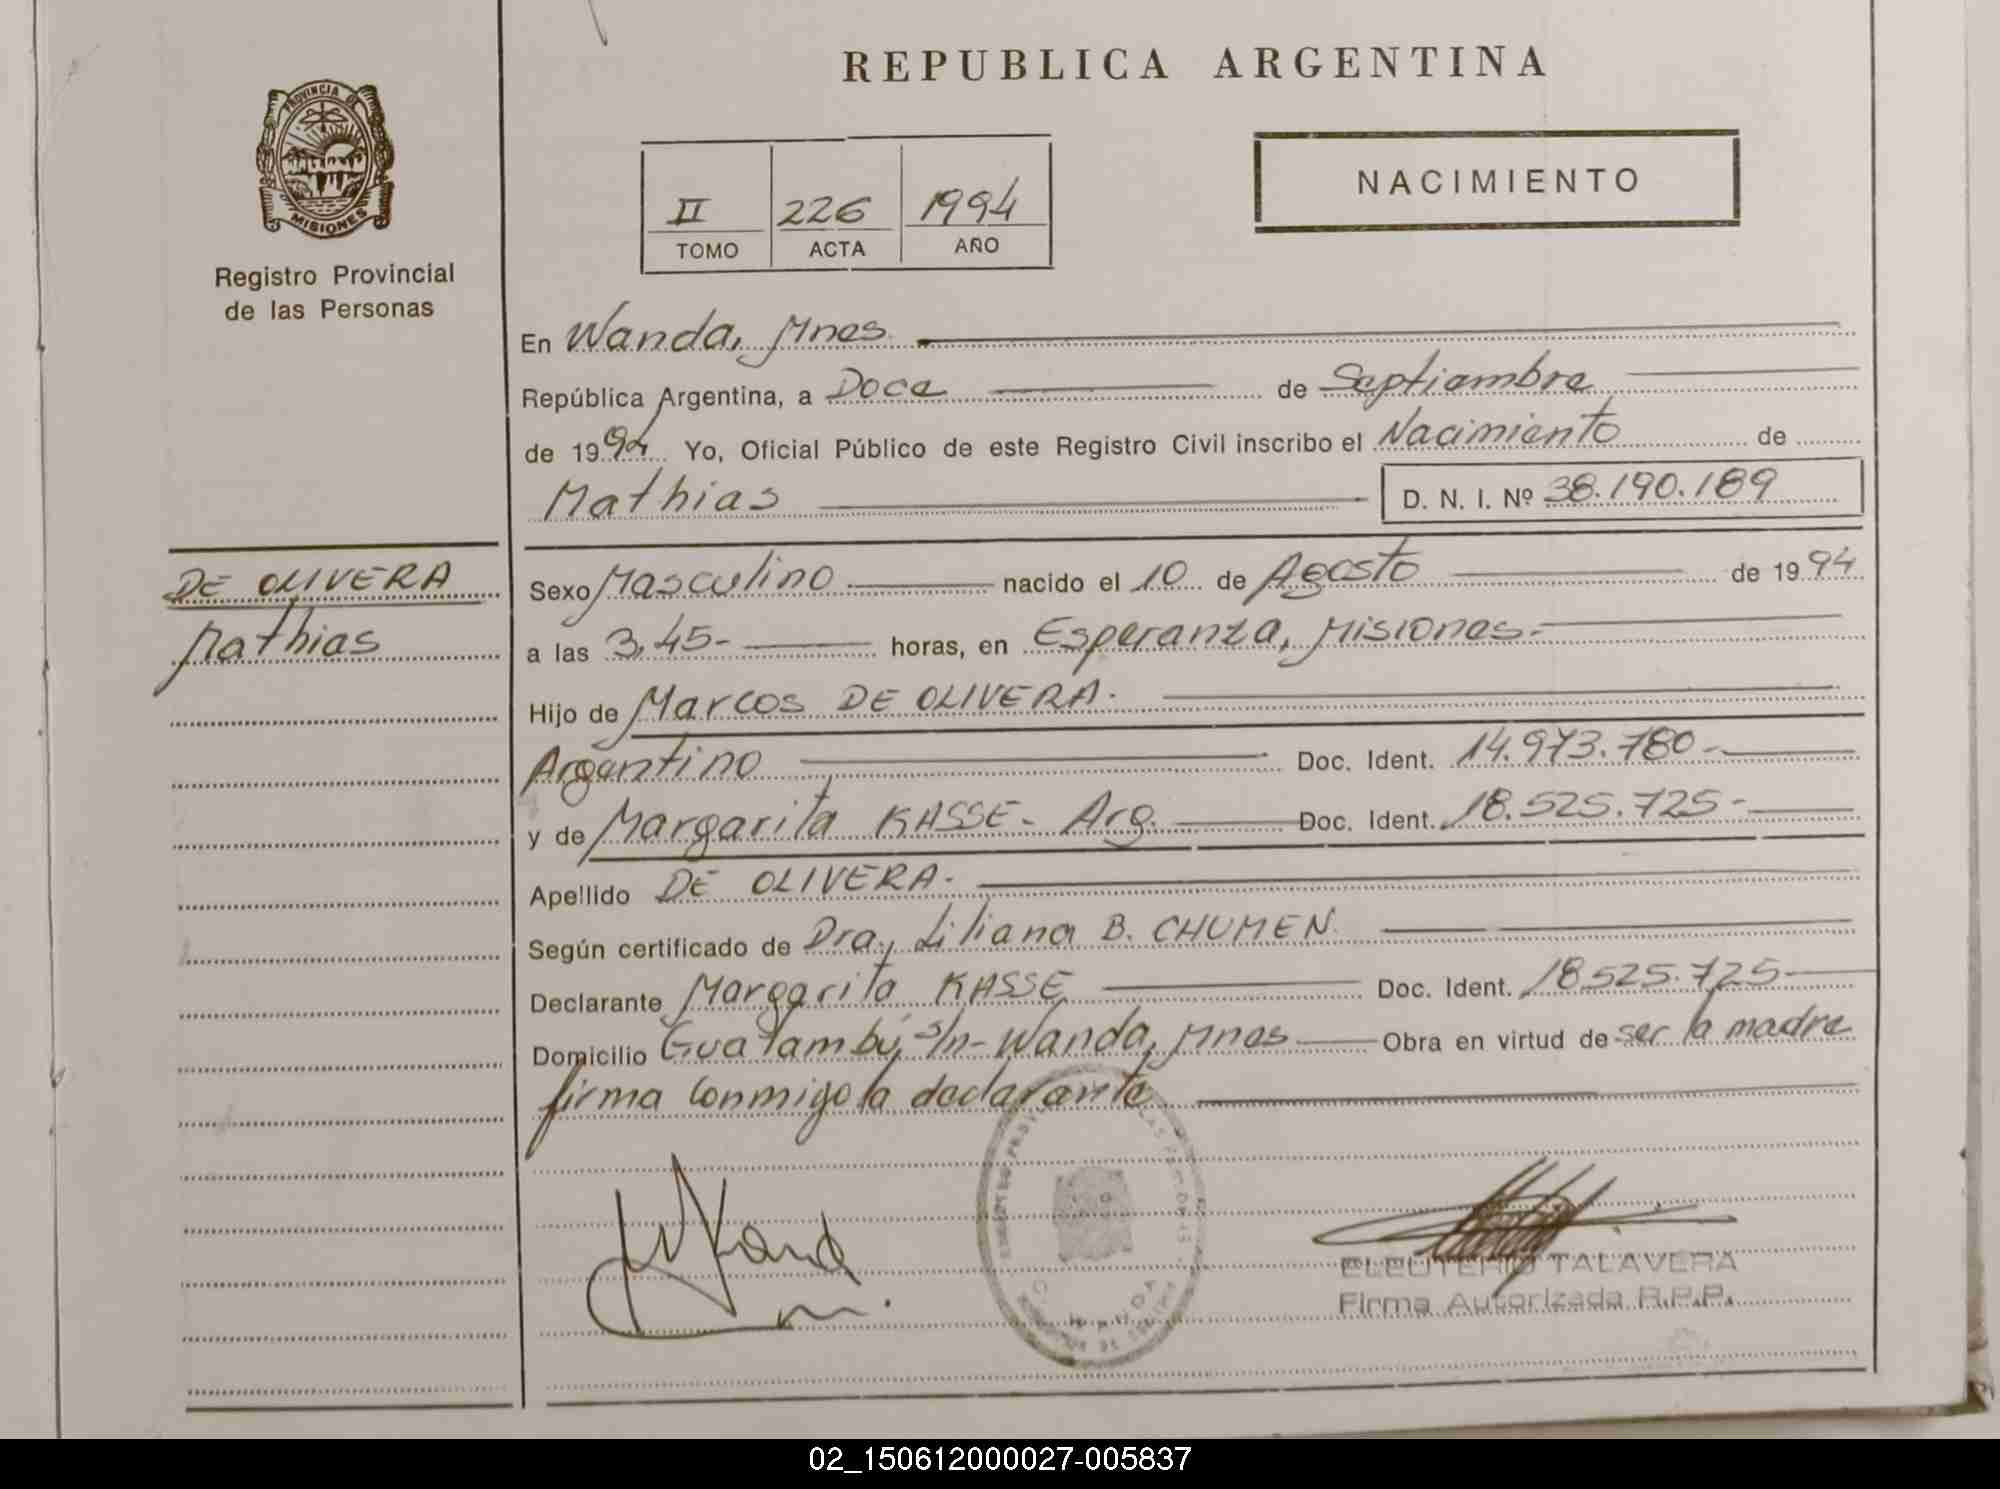 REPUBLICA ARGENTINA
PROVINCIA DE
MISIONES
Registro Provincial
de las Personas
II 226 1994
TOMO ACTA AÑO
NACIMIENTO
En Wanda, Mnes
República Argentina, a Doce de Septiembre
de 1994 Yo, Oficial Público de este Registro Civil inscribo el Nacimiento de
Mathias D. N. I. Nº 38.190.189
DE OLIVERA
Mathias
Sexo Masculino nacido el 10 de Agosto de 1994
a las 3,45- horas, en Esperanza, Misiones.-
Hijo de Marcos DE OLIVERA.
Argentino Doc. Ident. 14.973.780-
y de Margarita KASSE- Arg. Doc. Ident. 18.525.725-
Apellido DE OLIVERA-
Según certificado de Dra. Liliana B. CHUMEN
Declarante Margarita KASSE Doc. Ident. 18.525.725-
Domicilio Guatambú s/n- Wanda, Mnes Obra en virtud de ser la madre
firma conmigo la declarante
WANDA
ELEUTERIO TALAVERA
Firma Autorizada R.P.P.
02_150612000027-005837